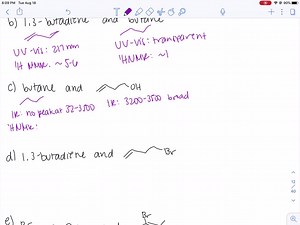 4:09 PM Tue Aug 18
b) 1,3-butadiene and butane
UV-vis: 217 nm
UV-vis: transparent
¹H NMR: ~5-6
¹H NMR: ~1
c) butane and OH
IR: no peak at 32-3500
IR: 3200-3500 broad
¹H NMR:
d) 1,3-butadiene and Br
e)
Br